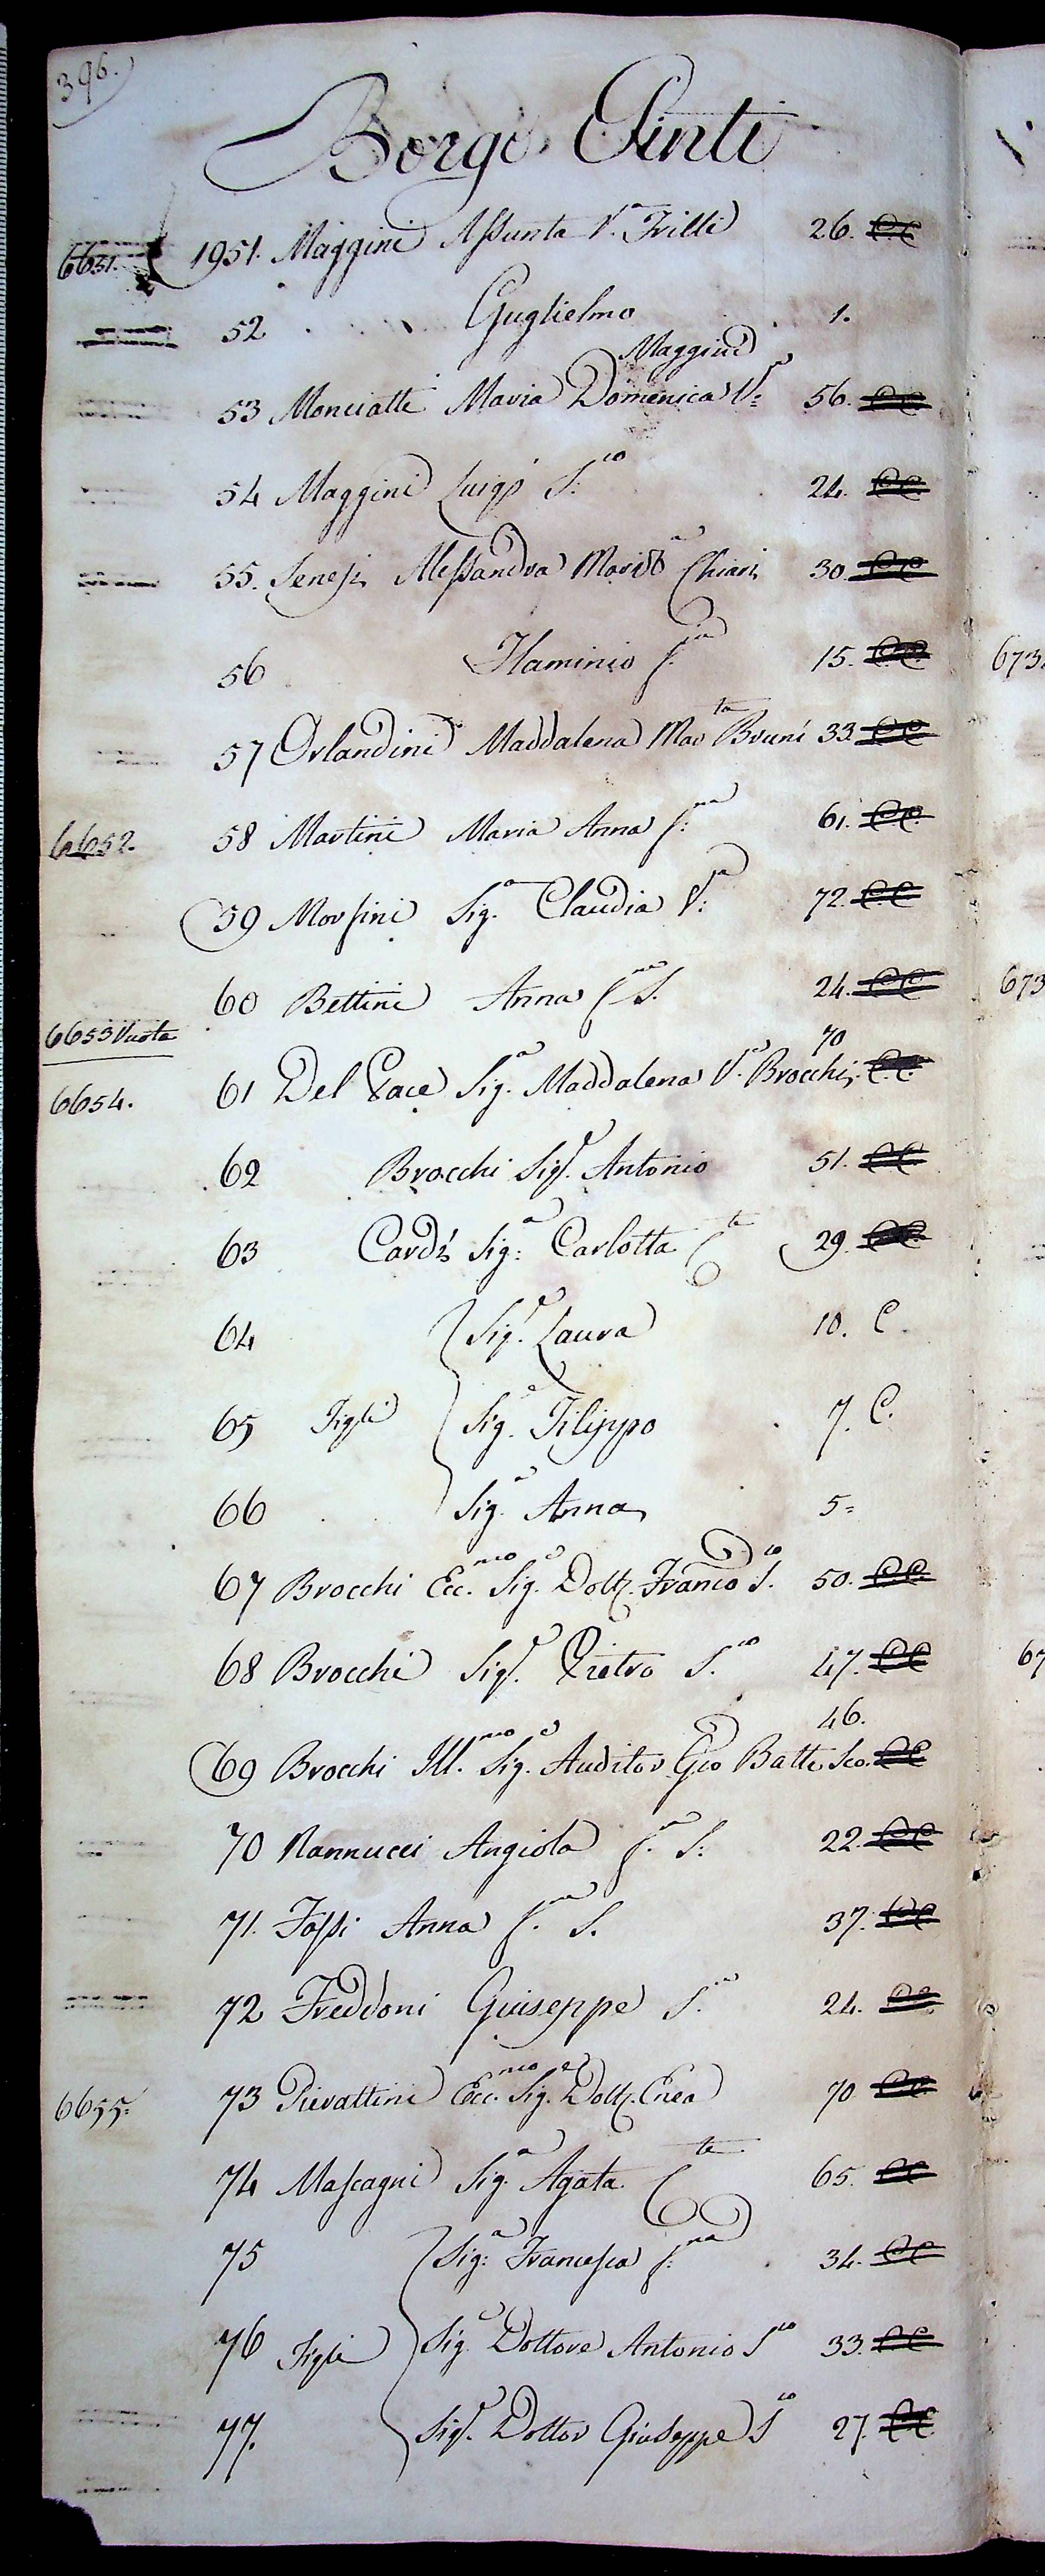 396.
Borgo Pinti
6631. 1951. Maggini Assunta V.a Frilli 26. C.C
52 Guglielmo 1.
Maggini
53 Monciatti Maria Domenica V.a 56. C.C.
54 Maggini Luigi S.co 24. C.C.
55. Senesi Alessandra Marit.a Chiari 30. C.C
56 Flaminio f.lio 15. C.C.
57 Orlandini Maddalena Mar.ta Bruni 33. C.C
6652. 58 Martini Maria Anna f.na 61. C.C.
59 Morsini Sig.a Claudia V.a 72. C.C
60 Bettini Anna S. 24. C.C
6653 Vuota
70
6654. 61 Del Pace Sig.a Maddalena V.a Brocchi C.C.
62 Brocchi Sig.r Antonio 51. C.C.
63 Cardi Sig.a Carlotta C.te 29. C.C.
64 Sig.a Laura 10. C.
65 Figli Sig.e Filippo 7. C.
66 Sig.a Anna 5=
67 Brocchi Ecc.mo Sig.e Dott. Franco S.co 50. C.C.
68 Brocchi Sig.r Pietro S.co 47. C.C
46.
69 Brocchi Ill.mo Sig.e Auditor Gio Batt.a Sco. C.C
70 Nannucci Angiola f.a S. 22. C.C
71. Fossi Anna f.na S. 37. C.C
72 Freddoni Giuseppe S.co 24. C.C.
6655. 73 Pierattini Ecc.mo Sig.e Dott. Enea 70 C.C.
74 Mascagni Sig.a Agata C.te 65. C.C
75 Sig.a Francesca f.na 34. C.C
76 Figli Sig.e Dottore Antonio S.co 33. C.C
77. Sig.r Dottor Giuseppe S.co 27. C.C